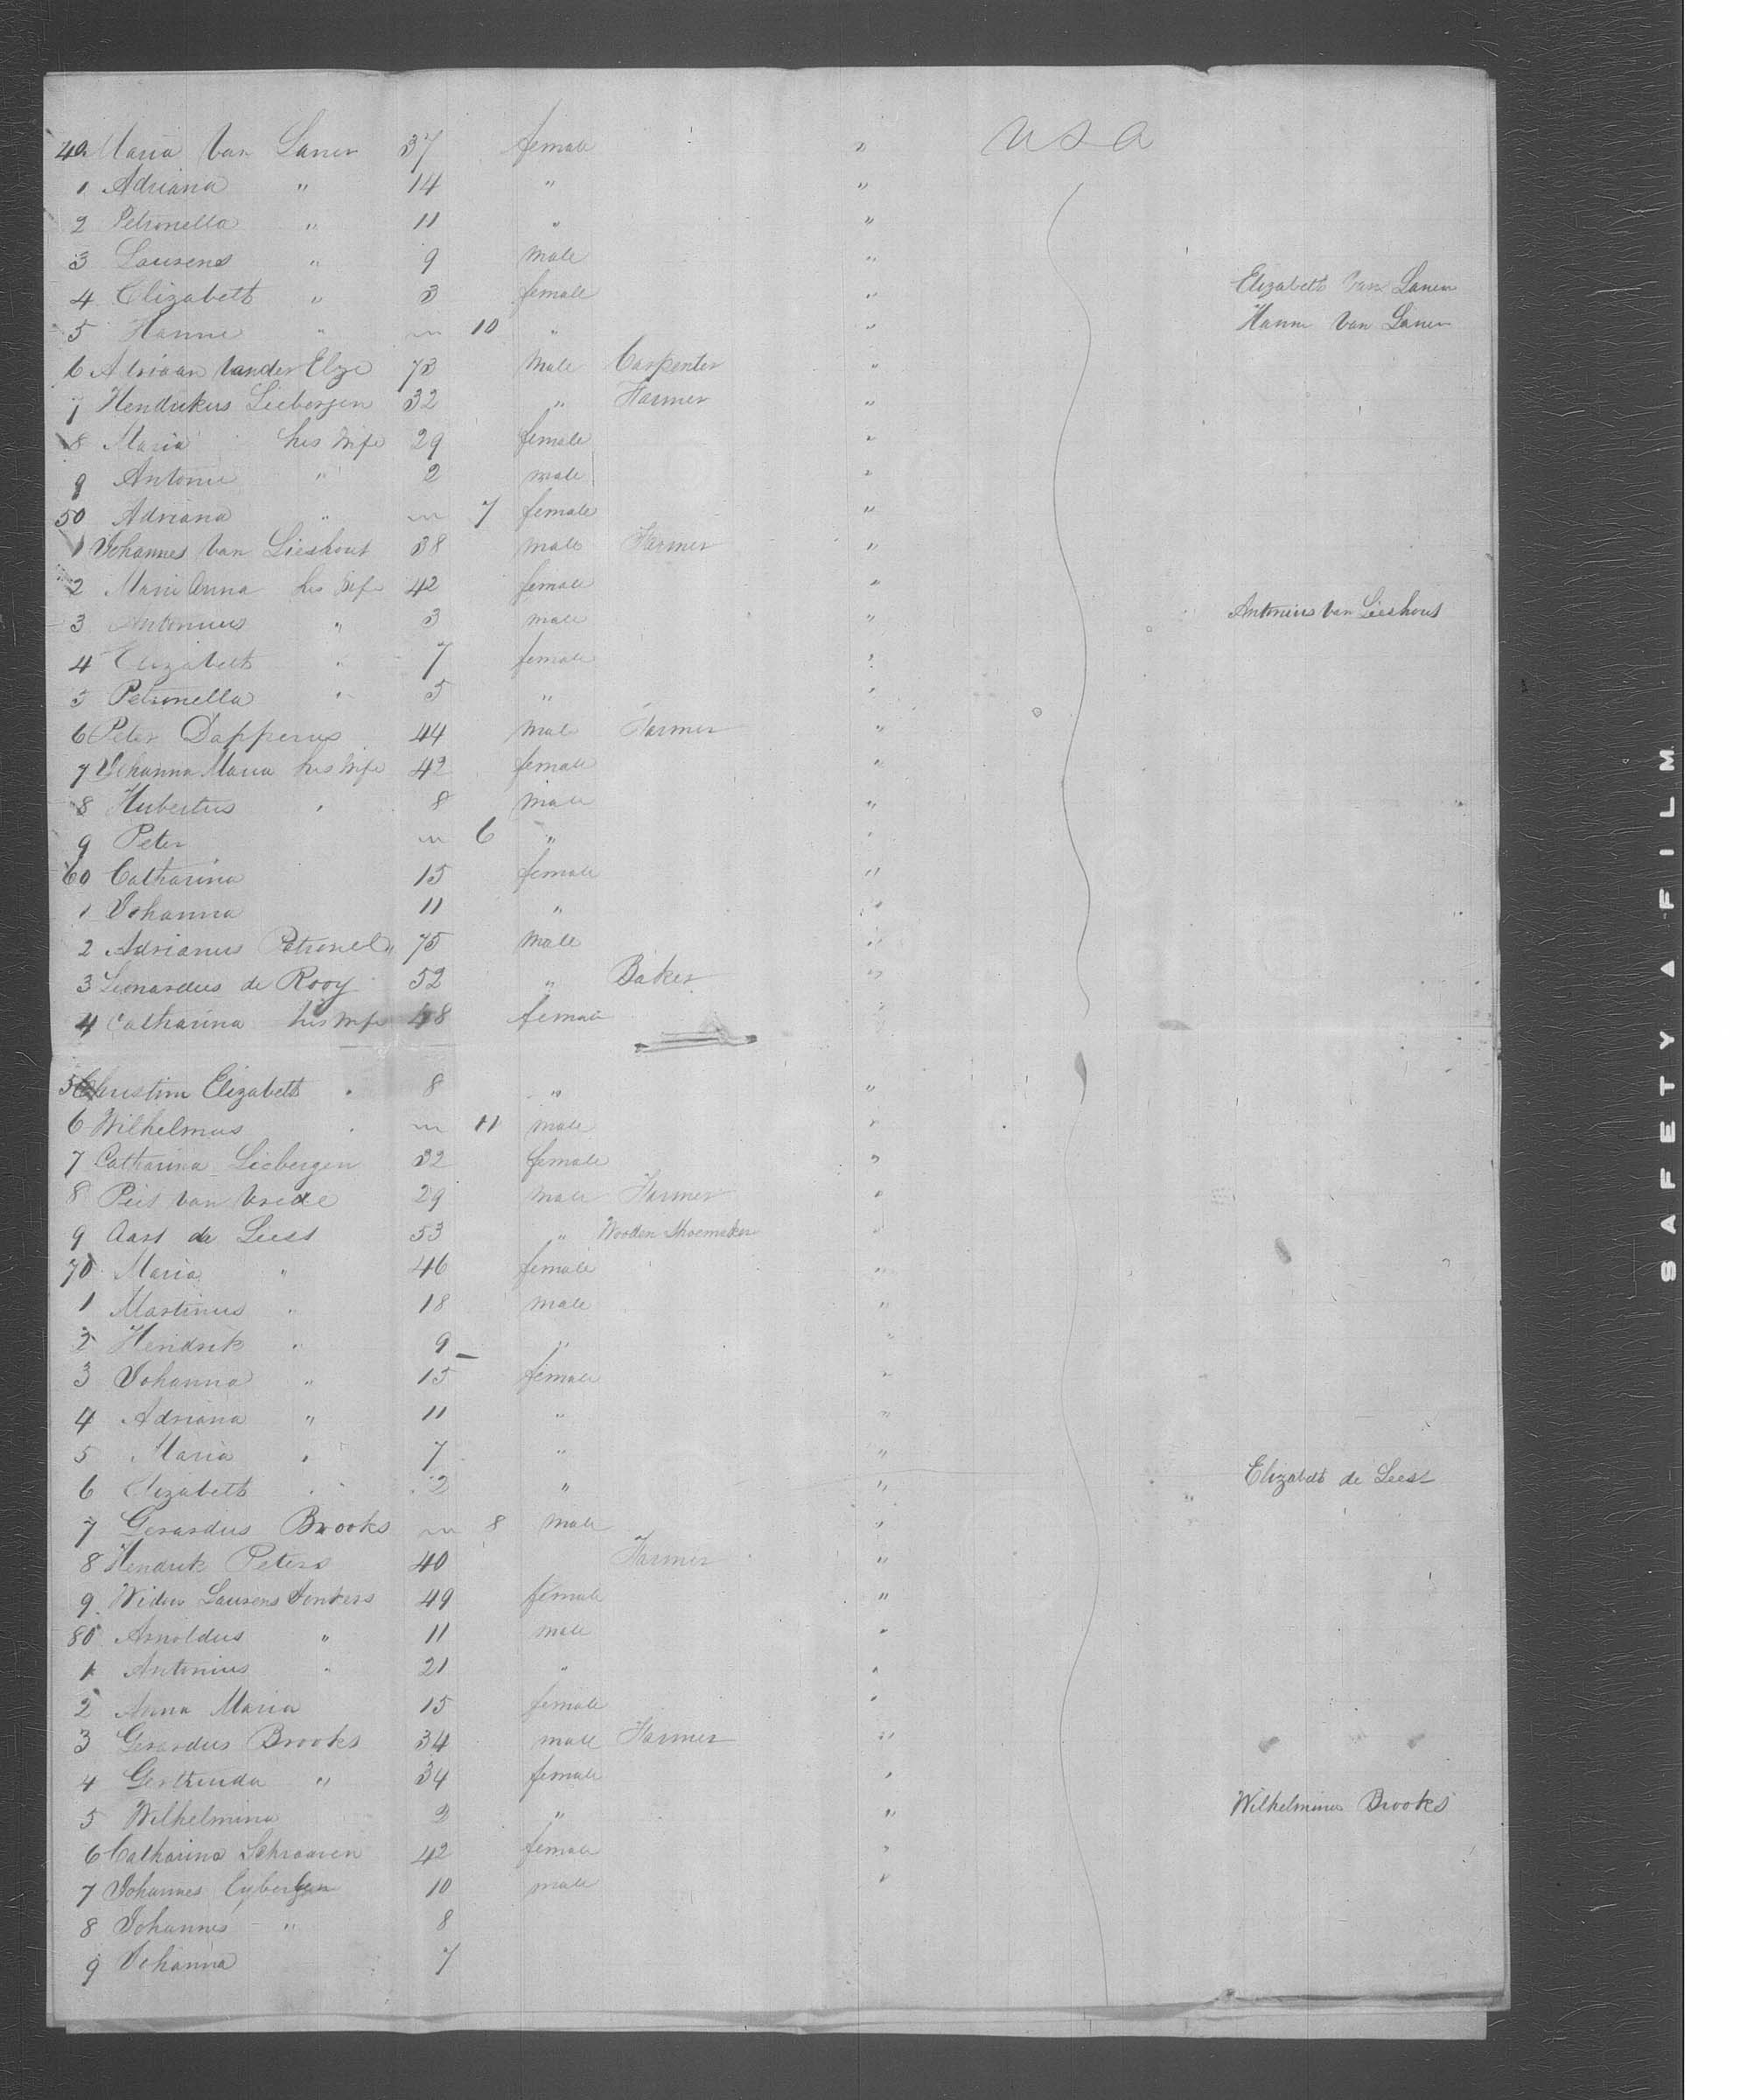 40 Maria Van Lanen 37 female " USA
1 Adriana " 14 " "
2 Petronella " 11 " "
3 Laurens " 9 male "
4 Elizabeth " 3 female " Elizabeth Van Lanen
5 Hanne " 10 " " Hanne Van Lanen
6 Adriaan Vander Elze 73 male Carpenter "
7 Hendrikus Liebergen 32 " Farmer "
8 Maria his Wife 29 female "
9 Antonie " 2 male "
50 Adriana " 7 female "
1 Johannes Van Lieshout 38 male Farmer "
2 Maria Anna his Wife 42 female "
3 Antonius " 3 male " Antonius Van Lieshout
4 Elizabeth " 7 female "
5 Petronella " 5 " "
6 Peter Dapperus 44 male Farmer "
7 Johanna Maria his Wife 42 female "
8 Hubertus " 8 male "
9 Peter 6 " "
60 Catharina 15 female "
1 Johanna 11 " "
2 Adrianus Petronel 75 male "
3 Leonardus de Rooy 52 " Baker "
4 Catharina his Wife 48 female "
5 Christin Elizabeth " 8 " "
6 Wilhelmus 11 male "
7 Catharina Liebergen 32 female "
8 Piet Van Vrede 29 male Farmer "
9 Aart de Leest 53 " Wooden Shoemaker "
70 Maria " 46 female "
1 Martinus " 18 male "
2 Hendrik " 9 " "
3 Johanna " 15 female "
4 Adriana " 11 " "
5 Maria " 7 " "
6 Elizabeth " 2 " " Elizabeth de Leest
7 Gerardus Brooks 8 male "
8 Hendrik Peters 40 Farmer "
9 Widow Laurens Jonkers 49 female "
80 Arnoldus " 11 male "
1 Antonius " 21 " "
2 Anna Maria 15 female "
3 Gerardus Brooks 34 male Farmer "
4 Gertruida " 34 female "
5 Wilhelmina 3 " " Wilhelmina Brooks
6 Catharina Schraaven 42 female "
7 Johannes 10 male "
8 Johannes " 8
9 Johanna 7
SAFETY A FILM